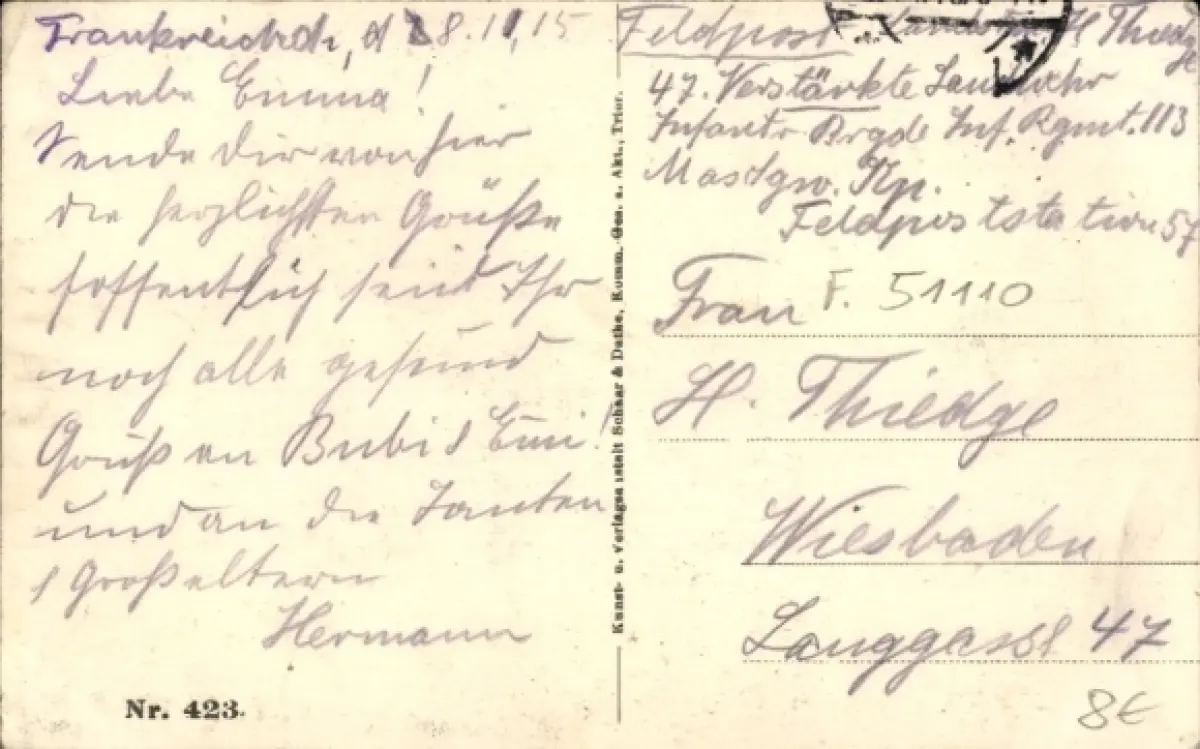 Frankreich, d 8.11.15
Liebe Emma!
Sende Dir von hier
die herzlichsten Grüße
hoffentlich seid Ihr
noch alle gesund
Gruß an Bubi &
und an die Tanten
& Großeltern
Hermann
Nr. 423.
Kunst- u. Verlagsanstalt Schaar & Dathe, Komm.-Ges. a. Akt., Trier.
Feldpost H Thiedge
47. Verstärkte Landwehr
Infantr Brgde Inf. Rgmt. 113
Maschgw. Kp.
Feldpoststation 57
Frau F. 51110
H. Thiedge
Wiesbaden
Langgasse 47
8€